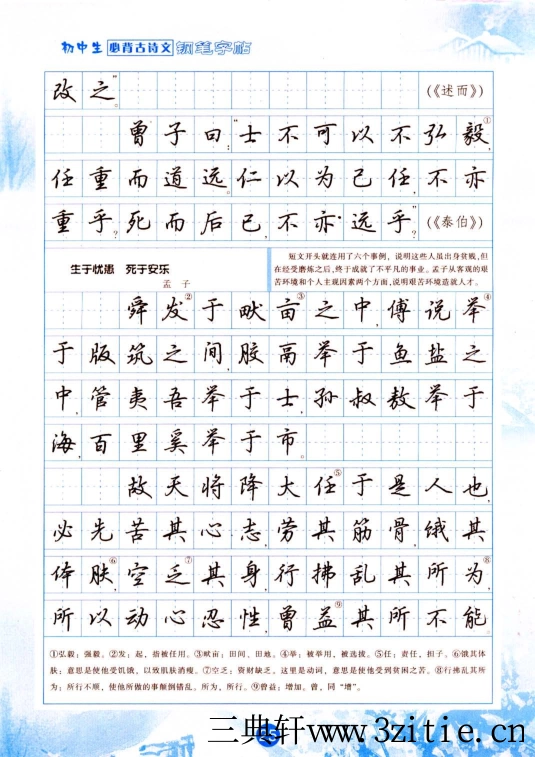 初中生 必背古诗文 钢笔字帖
改之。” (《述而》)
曾子曰:“士不可以不弘毅①,
任重而道远。仁以为己任,不亦
重乎?死而后已,不亦远乎?” (《泰伯》)
生于忧患 死于安乐
孟 子
短文开头就连用了六个事例,说明这些人虽出身贫贱,但
在经受磨炼之后,终于成就了不平凡的事业。孟子从客观的艰
苦环境和个人主观因素两个方面,说明艰苦环境造就人才。
舜发②于畎亩③之中,傅说举④
于版筑之间,胶鬲举于鱼盐之
中,管夷吾举于士,孙叔敖举于
海,百里奚举于市。
故天将降大任⑤于是人也,
必先苦其心志,劳其筋骨,饿其
体肤⑥,空乏⑦其身,行拂乱其所为⑧,
所以动心忍性,曾益⑨其所不能
①弘毅:强毅。②发:起,指被任用。③畎亩:田间,田地。④举:被举用,被选拔。⑤任:责任,担子。⑥饿其体
肤:意思是使他受饥饿,以致肌肤消瘦。⑦空乏:资财缺乏。这里是动词,意思是使他受到贫困之苦。⑧行拂乱其所
为:所行不顺,使他所做的事颠倒错乱。所为,所行。⑨曾益:增加。曾,同“增”。
三典轩www.3zitie.cn